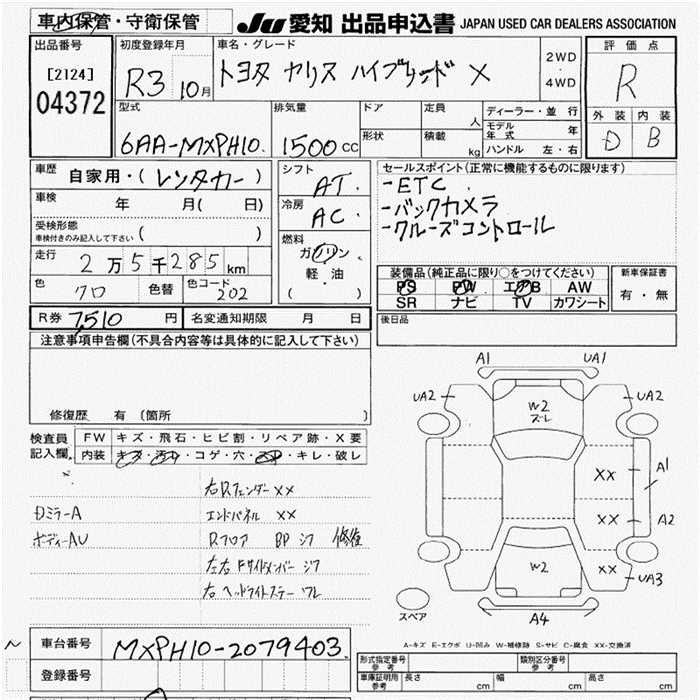 車内保管・守衛保管
JU 愛知 出品申込書 JAPAN USED CAR DEALERS ASSOCIATION
出品番号
[2124]
04372
初度登録年月
R3 10月
車名・グレード
トヨタ ヤリス ハイブリッド X
2WD
・
4WD
評価点
R
外装 内装
D B
型式
6AA-MXPH10
排気量
1500 cc
ドア
形状
定員
人
積載
kg
ディーラー・並行
モデル年式 年
ハンドル 左・右
車歴
自家用・(レンタカー)
車検
年 月( 日)
受検形態
車検付きのみ記入して下さい ( )
走行
2万5千285km
色
クロ
色替
色コード
202
シフト
AT
冷房
AC
燃料
ガソリン
軽・油
( )
セールスポイント(正常に機能するものに限ります)
-ETC
-バックカメラ
-クルーズコントロール
装備品(純正品に限り○をつけてください)
PS PW エアB AW
SR ナビ TV カワシート
新車保証書
有・無
R券 7,510 円
名変通知期限 月 日
後日品
注意事項申告欄(不具合内容等は具体的に記入して下さい)
修復歴 有 (箇所 )
検査員
記入欄
FW キズ・飛石・ヒビ割・リペア跡・X要
内装 キズ・汚れ・コゲ・穴・キレ・破レ
右Rフェンダー XX
DミラーA
エンドパネル XX
ボディーAU
Rフロア BP シワ 修復
左右Fサイドメンバー シワ
右ヘッドライトステー ワレ
A1
UA1
UA2
UA2
W2
ズレ
XX
A1
XX
A2
W2
XX
UA3
A4
スペア
A-キズ E-エクボ U-凹み W-補修跡 S-サビ C-腐食 XX-交換済
車台番号
MXPH10-2079403.
登録番号
形式指定番号
参考
類別区分番号
参考
車庫証明用
参考
長さ cm
幅 cm
高さ cm